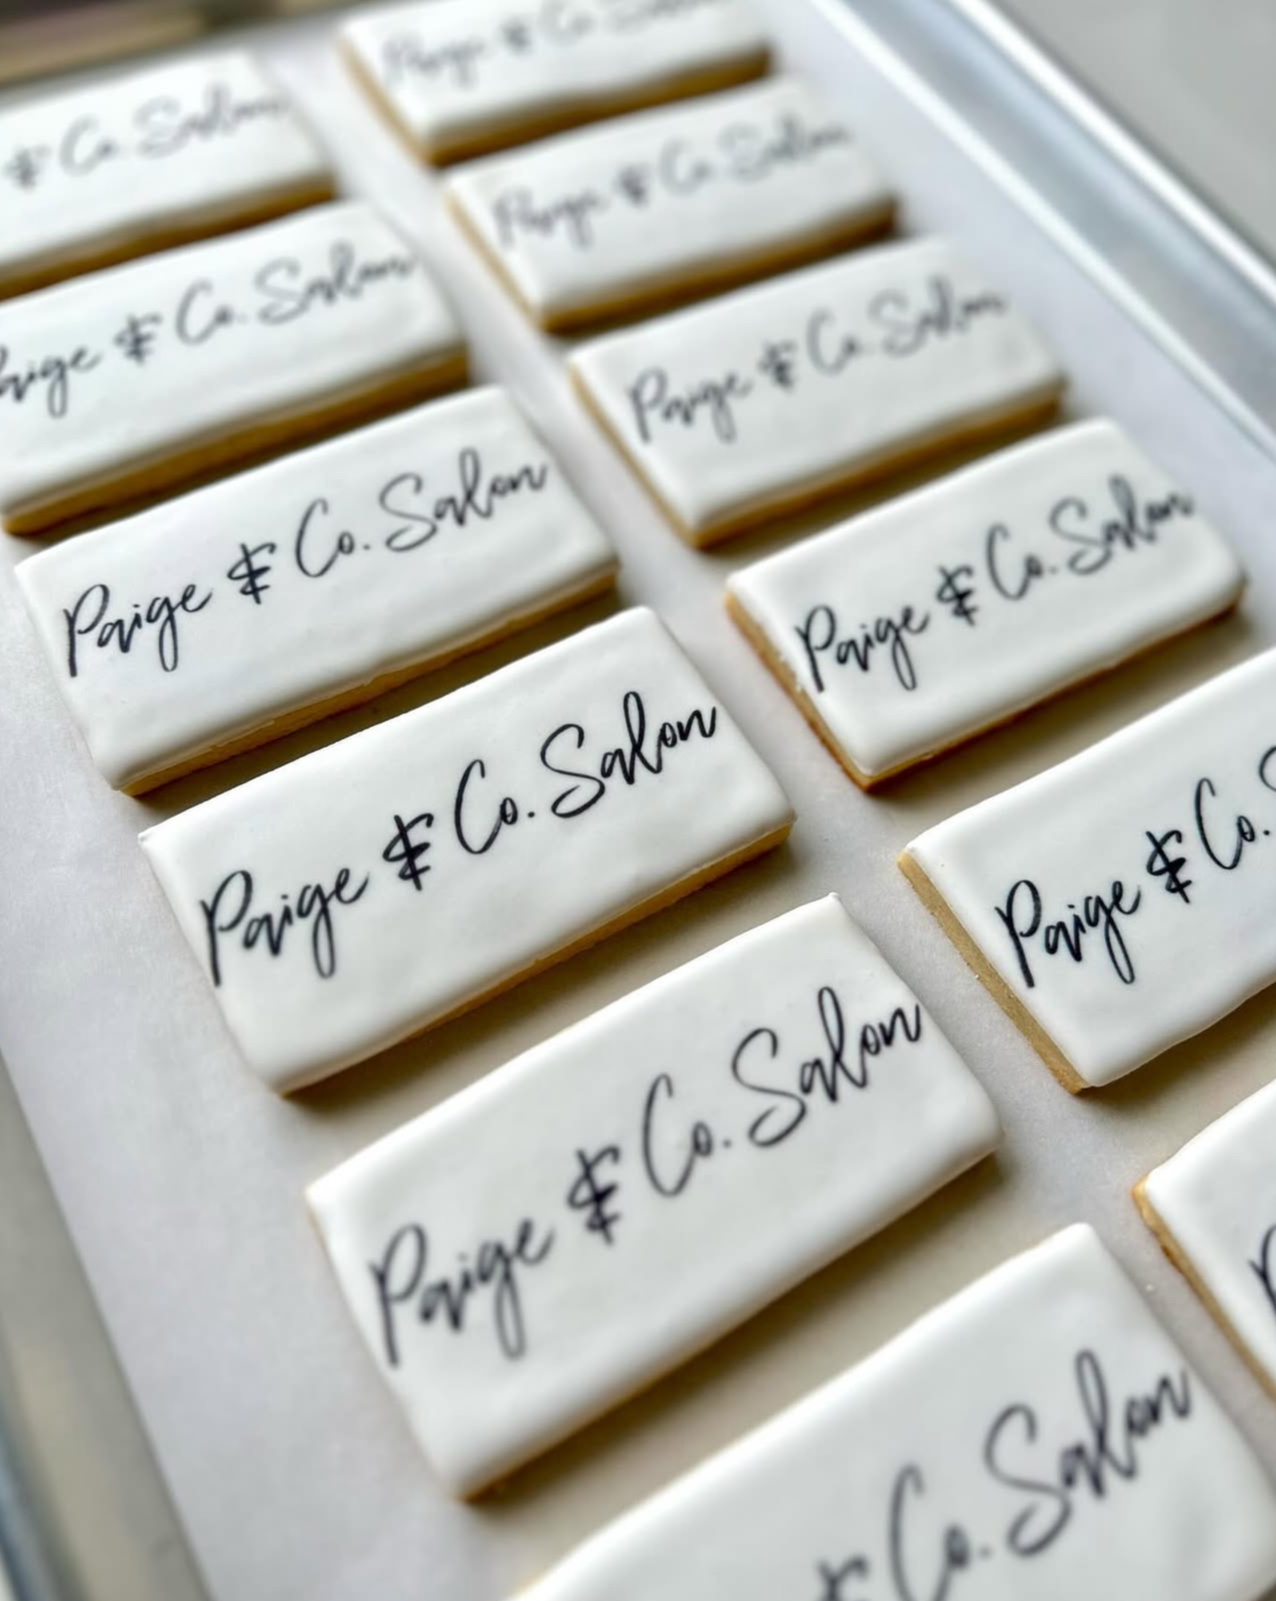 Paige & Co. Salon
& Co. Salon
Paige & Co. Salon
Paige & Co. Salon
Paige & Co. Salon
Paige & Co. Salon
Paige & Co. Salon
Paige & Co. Salon
Paige & Co. S
Paige & Co. Salon
P
& Co. Salon